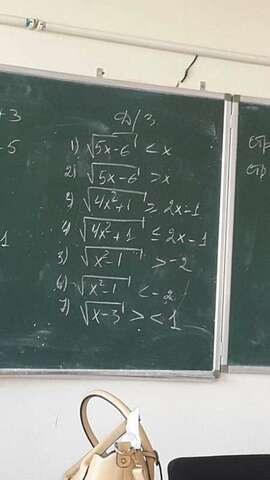 +3
-5
1
Д/З
1) √5x-6 < x
2) √5x-6 > x
3) √4x²+1 ≥ 2x-1
4) √4x²+1 ≤ 2x-1
5) √x²-1 > -2
6) √x²-1 < -2
7) √x-3 > < 1
стр
стр